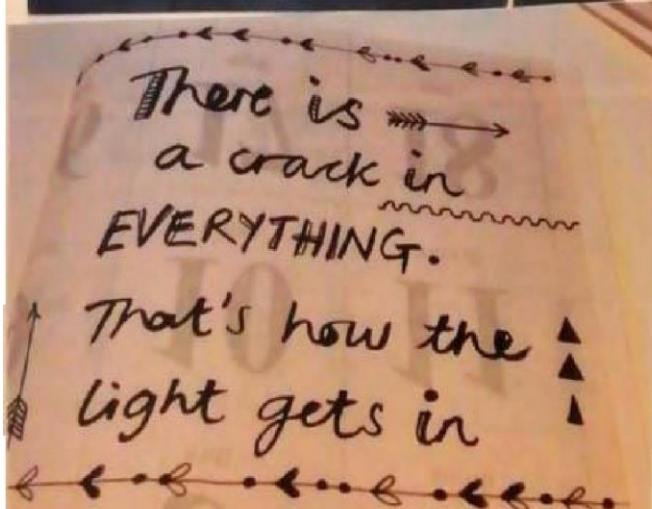 There is
a crack in
EVERYTHING.
That's how the
light gets in